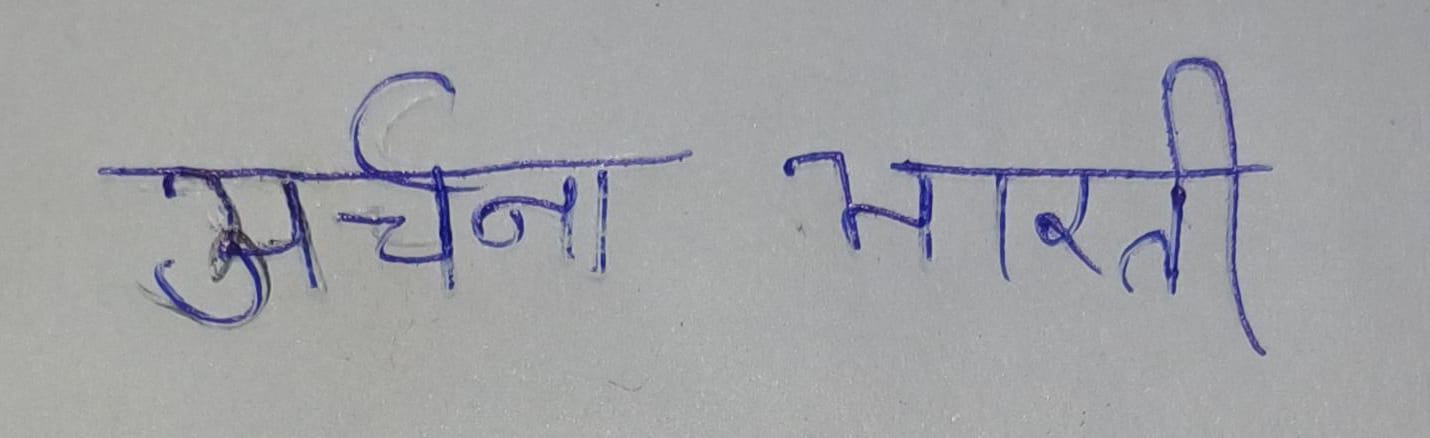 अर्चना भारती